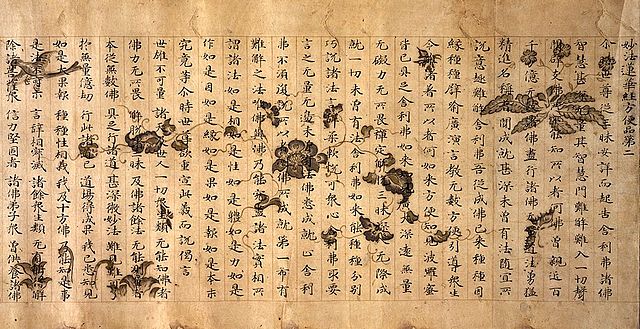 妙法蓮華經方便品第
尒時世尊從三昧安詳而起告舍利弗諸佛
智慧甚深無量其智慧門難解難入一切聲
聞辟支佛所不能知所以者何佛曾親近百
千萬億无數諸佛盡行諸佛无量道法勇猛
精進名稱普聞成就甚深未曾有法隨宜所
說意趣難解舍利弗吾從成佛已來種種因
緣種種譬喻廣演言教无數方便引導衆生
令離諸著所以者何如來方便知見波羅蜜
皆已具足舍利弗如來知見廣大深遠無量
无礙力无所畏禪定解脫三昧深入无際成
就一切未曾有法舍利弗如來能種種分別
巧說諸法言辭柔軟悅可衆心舍利弗取要
言之无量无邊未曾有法佛悉成就止舍利
弗不須復說所以者何佛所成就第一希有
難解之法唯佛與佛乃能究盡諸法實相所
謂諸法如是相如是性如是體如是力如是
作如是因如是緣如是果如是報如是本末
究竟等尒時世尊欲重宣此義而說偈言
世雄不可量 諸天及世人 一切衆生類 无能知佛者
佛力无所畏 解脫諸三昧 及佛諸餘法 无能測量者
本從無數佛 具足行諸道 甚深微妙法 難見難可了
於無量億劫 行此諸道已 道場得成果 我已悉知見
如是大果報 種種性相義 我及十方佛 乃能知是事
是法不可示 言辭相寂滅 諸餘衆生類 无有能得解
除諸菩薩衆 信力堅固者 諸佛弟子衆 曾供養諸佛